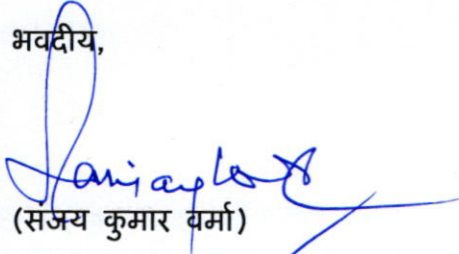 भवदीय,
(संजय कुमार वर्मा)